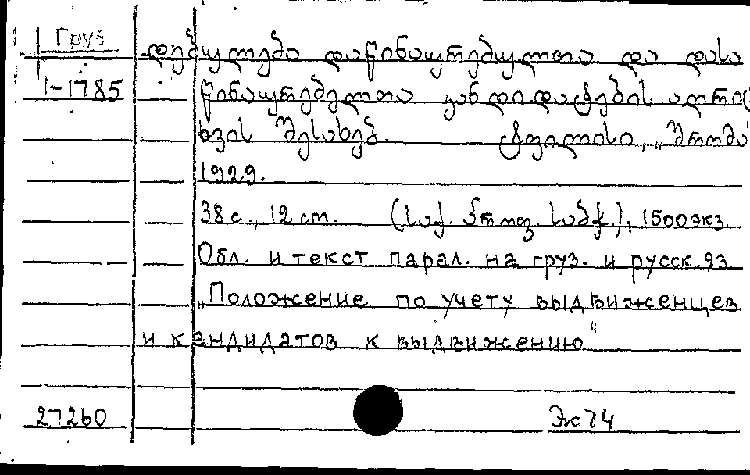 Груз
დებულება დაწინაურებულთა და დასა
1-1785 წინაურებელთა კანდიდატების აღრიც
ხვის შესახებ. ტფილისი, „შრომა"
1929.
38 с., 12 ст. (საქ. პროფ. საბჭ.), 1500 экз
Обл. и текст парал. на груз. и русск. яз
„Положение по учету выдвиженцев
и кандидатов к выдвижению"
27260 Эк 74